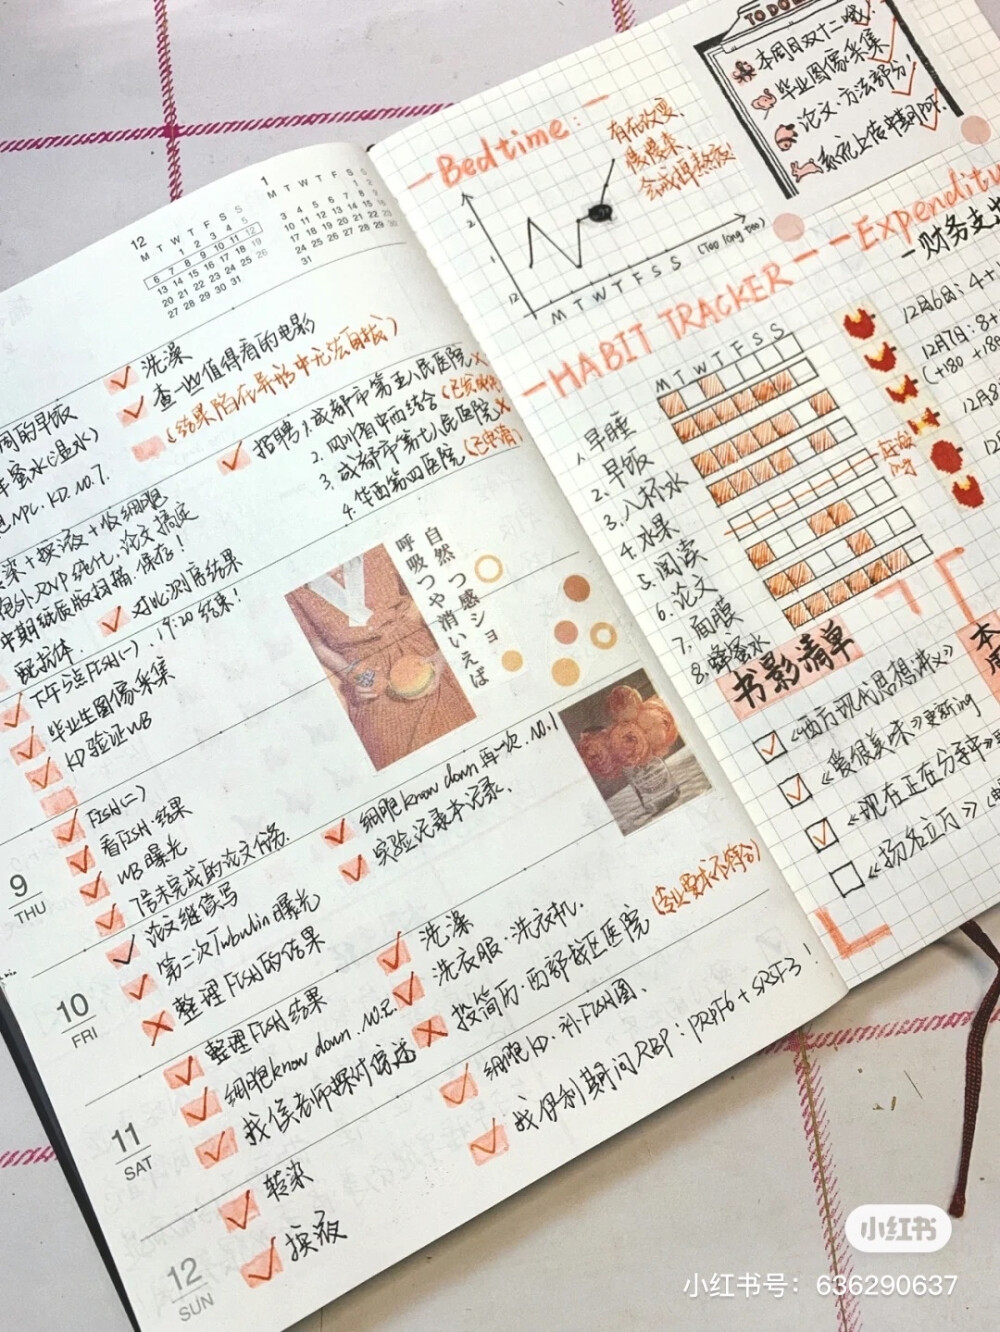 12
M T W T F S S
1 2 3 4 5
6 7 8 9 10 11 12
13 14 15 16 17 18 19
20 21 22 23 24 25 26
27 28 29 30 31
1
M T W T F S S
1 2
3 4 5 6 7 8 9
10 11 12 13 14 15 16
17 18 19 20 21 22 23
24 25 26 27 28 29 30
31
洗澡
查一些值得看的电影
(结果陷在异形中无法自拔)
的早饭
蜂蜜水(温水)
NPC. KD. NO.7.
招聘: 1. 成都市第五人民医院 X
2. 四川省中西结合
3. 成都市第七人民医院 X
4. 华西第四医院
+ 换液 + 收细胞
论文搞定
纸质版扫描. 保存!
对比测序结果
下午5点FISH(一). 19:20结束!
毕业生图像采集
KD验证WB
自然
呼吸
つ感ショ
つや消いえば
9
THU
FISH(二)
看FISH结果
WB曝光
论文继续写
细胞know down再一次. NO.1
实验记录本记录.
10
FRI
第二次Tubulin曝光
整理FISH的结果
洗澡
洗衣服. 洗衣机.
投简历. 西部战区医院
(专业要求不符合)
11
SAT
整理FISH结果
细胞know down. NO.2.
找侯老师探讨
细胞IP. 补FISH图.
找伊利期间RBP: PRPF6 + SRSF3!
12
SUN
转染
换液
Bedtime:
有在改变,
慢慢来,
会戒掉熬夜!
2
1
12
M T W T F S S
(Too long too)
TO DO
本周日双十二哦!
毕业图像采集
论文. 方法部分!
系统上传中期
HABIT TRACKER
M T W T F S S
1. 早睡
2. 早饭
3. 八杯水
4. 水果
5. 阅读
6. 论文
7. 面膜
8. 蜂蜜水
Expenditu
财务支出
12月6日: 4+
12月7日: 8+
(+180 +18
12月8
12
书影清单
《西方现代思想讲义》
《爱很美味》更新ing
《现在正在分手中》
《扬名立万》
本
周
小红书
小红书号：636290637